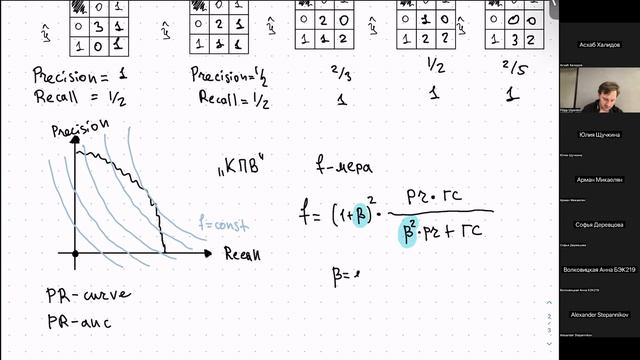 0 1
0 3 1
1 0 1
ŷ
0 2 1
1 1 1
ŷ
0 2 0
1 1 2
ŷ
0 1 0
1 2 2
ŷ
0 0 0
1 3 2
Precision = 1
Recall = 1/2
Precision = 1/2
Recall = 1/2
2/3
1
1/2
1
2/5
1
Precision
Recall
f=const
"КПВ"
f-мера
f = (1+β)² · pr · rc / β² · pr + rc
β=
PR-curve
PR-auc
2 / 3
Асхаб Халидов
Асхаб Халидов
Юлия Щучкина
Юлия Щучкина
Арман Микаолян
Арман Микаолян
Софья Деревцова
Софья Деревцова
Волковицкая Анна БЭК219
Волковицкая Анна БЭК219
Alexander Stepannikov
Alexander Stepannikov